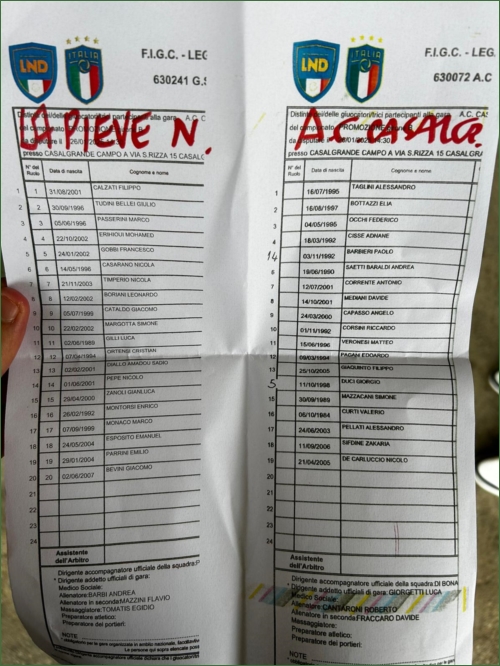 LND
ITALIA
F.I.G.C. - LEG
630241 G.S
LA PIEVE N.
Distinta dei/delle giuocatori/trici partecipanti alla gara A.C. C
del campionato PROMOZIONE
da disputare il
presso CASALGRANDE CAMPO A VIA S.RIZZA 15 CASALG
N° del Ruolo Data di nascita Cognome e nome
1 1 31/08/2001 CALZATI FILIPPO
2 2 30/09/1996 TUDINI BELLEI GIULIO
3 3 05/06/1996 PASSERINI MARCO
4 4 22/10/2002 ERIHIOUI MOHAMED
5 5 24/01/2002 GOBBI FRANCESCO
6 6 14/05/1996 CASARANO NICOLA
7 7 21/11/2003 TIMPERIO NICOLA
8 8 12/02/2002 BORIANI LEONARDO
9 9 05/07/1999 CATALDO GIACOMO
10 10 22/02/2002 MARGOTTA SIMONE
11 11 02/08/1989 GILLI LUCA
12 12 07/04/1994 ORTENSI CRISTIAN
13 13 02/02/2001 DIALLO AMADOU SADIO
14 14 01/08/2001 PEPE NICOLO
15 15 29/04/2000 ZANOLI GIANLUCA
16 16 28/02/1992 MONTORSI ENRICO
17 17 07/09/1999 MONACO MARCO
18 18 24/05/2004 ESPOSITO EMANUEL
19 19 29/01/2004 PARRINI EMILIO
20 20 02/06/2007 BEVINI GIACOMO
21
22
23
24
Assistente dell'Arbitro
Dirigente accompagnatore ufficiale della squadra:P
* Dirigente addetto ufficiali di gara:
Medico Sociale:
Allenatore:BARBI ANDREA
Allenatore in seconda:MAZZINI FLAVIO
Massaggiatore:TOMATIS EGIDIO
Preparatore atletico:
Preparatore dei portieri:
NOTE
LND
ITALIA
F.I.G.C. - LEG
630072 A.C
Distinta dei/delle giuocatori/trici partecipanti alla gara A.C. CAS
del campionato PROMOZIONE
da disputare il
presso CASALGRANDE CAMPO A VIA S.RIZZA 15 CASALGRA
N° del Ruolo Data di nascita Cognome e nome
1 16/07/1995 TAGLINI ALESSANDRO
2 16/08/1997 BOTTAZZI ELIA
3 04/05/1995 OCCHI FEDERICO
4 18/03/1992 CISSE ADNANE
14 03/11/1992 BARBIERI PAOLO
6 19/06/1990 SAETTI BARALDI ANDREA
7 12/07/2001 CORRENTE ANTONIO
8 14/10/2001 MEDIANI DAVIDE
9 24/03/2000 CAPASSO ANGELO
10 01/11/1992 CORSINI RICCARDO
11 15/06/1996 VERONESI MATTEO
12 09/03/1994 PAGANI EDOARDO
13 25/10/2005 GIAQUINTO FILIPPO
5 11/10/1998 DUCI GIORGIO
15 30/09/1989 MAZZACANI SIMONE
16 06/10/1984 CURTI VALERIO
17 24/06/2003 PELLATI ALESSANDRO
18 11/09/2006 SIFDINE ZAKARIA
19 21/04/2005 DE CARLUCCIO NICOLO
20
21
22
23
24
Assistente dell'Arbitro
Dirigente accompagnatore ufficiale della squadra:DI BONA
* Dirigente addetto ufficiali di gara: GIORGETTI LUCA
Medico Sociale:
Allenatore: CANTARONI ROBERTO
Allenatore in seconda:FRACCARO DAVIDE
Massaggiatore:
Preparatore atletico:
Preparatore dei portieri:
NOTE